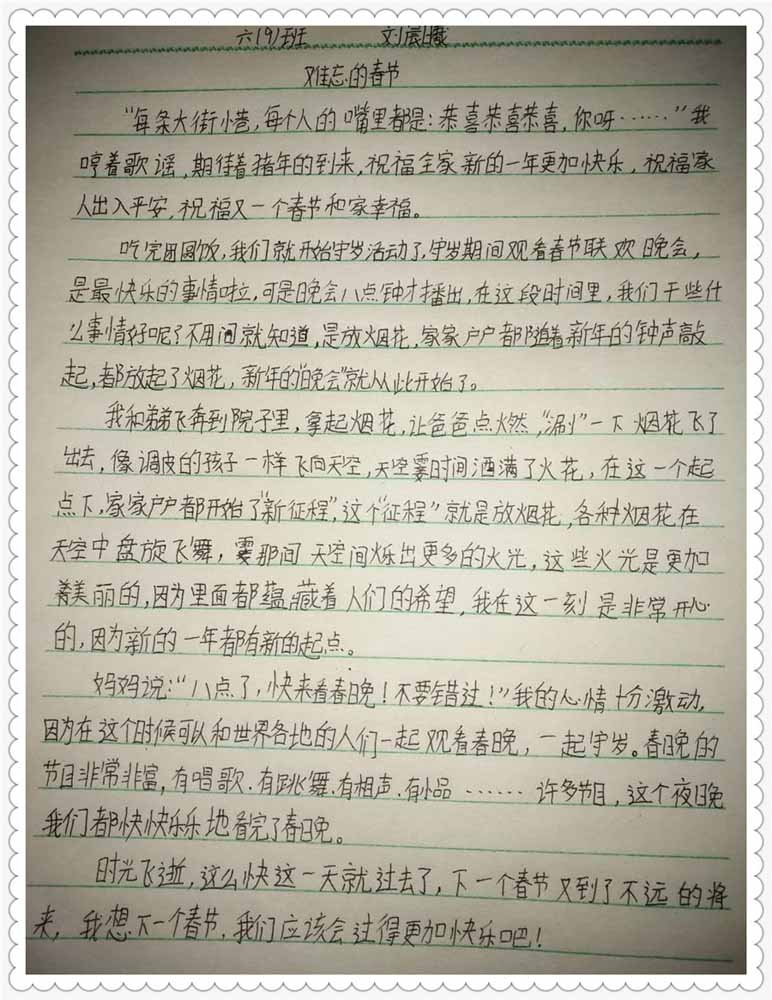 六(9)班 刘宸曦
难忘的春节
“每条大街小巷,每个人的嘴里都是:恭喜恭喜恭喜,你呀……”我
哼着歌谣,期待着猪年的到来,祝福全家新的一年更加快乐,祝福家
人出入平安,祝福又一个春节和家幸福。
吃完团圆饭,我们就开始守岁活动了,守岁期间观看春节联欢晚会,
是最快乐的事情啦,可是晚会八点钟才播出,在这段时间里,我们干些什
么事情好呢?不用问就知道,是放烟花,家家户户都随着新年的钟声敲
起,都放起了烟花,新年的“晚会”就从此开始了。
我和弟弟飞奔到院子里,拿起烟花,让爸爸点燃,“涮”一下烟花飞了
出去,像调皮的孩子一样飞向天空,天空霎时间洒满了火花,在这一个起
点下,家家户户都开始了“新征程”,这个“征程”就是放烟花,各种烟花在
天空中盘旋飞舞,霎那间天空间烁出更多的火光,这些火光是更加
美丽的,因为里面都蕴藏着人们的希望,我在这一刻是非常开心
的,因为新的一年都有新的起点。
妈妈说:“八点了,快来看春晚!不要错过!”我的心情十分激动,
因为在这个时候可以和世界各地的人们一起观看春晚,一起守岁。春晚的
节目非常非富,有唱歌.有跳舞.有相声.有小品……许多节目,这个夜晚
我们都快快乐乐地看完了春晚。
时光飞逝,这么快这一天就过去了,下一个春节又到了不远的将
来,我想下一个春节,我们应该会过得更加快乐吧!